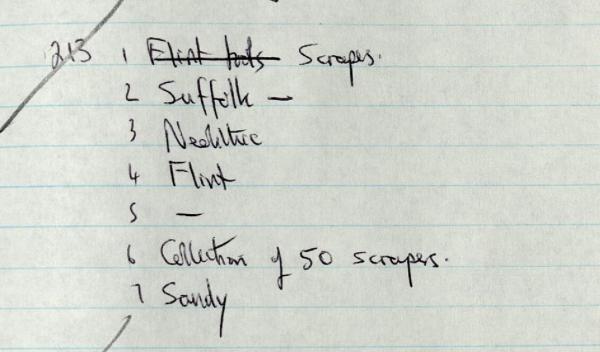 213 1 Flint tools Scrapes.
2 Suffolk —
3 Neolithic
4 Flint
5 —
6 Collection of 50 scrapers.
7 Sandy